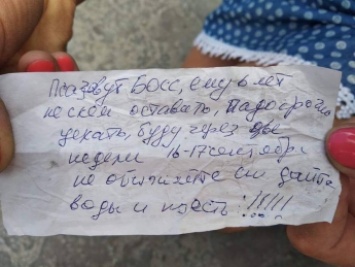 Пса зовут БОСС, ему 6 лет
не с кем оставить, надо срочно
уехать, буду через две
недели 16-17 сентября
не обижайте его дайте
воды и поесть !!!!!!